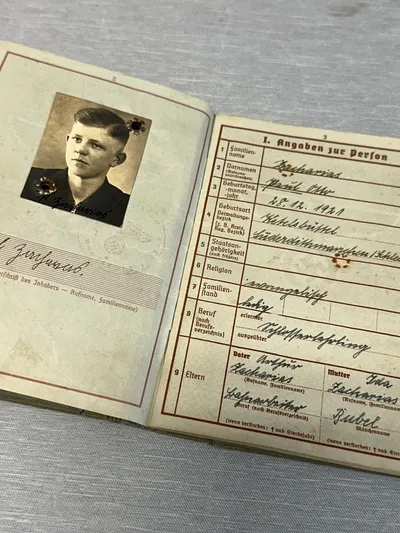 2
Zacharias.
(Unterschrift des Inhabers — Rufname, Familienname)
3
I. Angaben zur Person
1 Familien-
name
Zacharias
2 Vornamen
(Rufname
unterstreichen)
Paul Otto
3 Geburtstag,
-monat,
-jahr
20. 12. 1921
4 Geburtsort
Verwaltungs-
bezirk
(z. B. Kreis,
Reg. Bezirk)
Süderdithmarschen
5 Staatsan-
gehörigkeit
(auch frühere)
6 Religion
evangelisch
7 Familien-
stand
ledig
8 Beruf
(nach
Berufs-
verzeichnis)
erlernter
Schlosserlehrling
ausgeübter
9 Eltern
Vater Arthur
Zacharias
(Rufname, Familienname)
Bahnarbeiter
Beruf (nach Berufsverzeichnis)
(wenn verstorben: † und Sterbejahr)
Mutter Ida
Zacharias
(Rufname, Familienname)
Rubel
Mädchenname
(wenn verstorben: † und Sterbejahr)